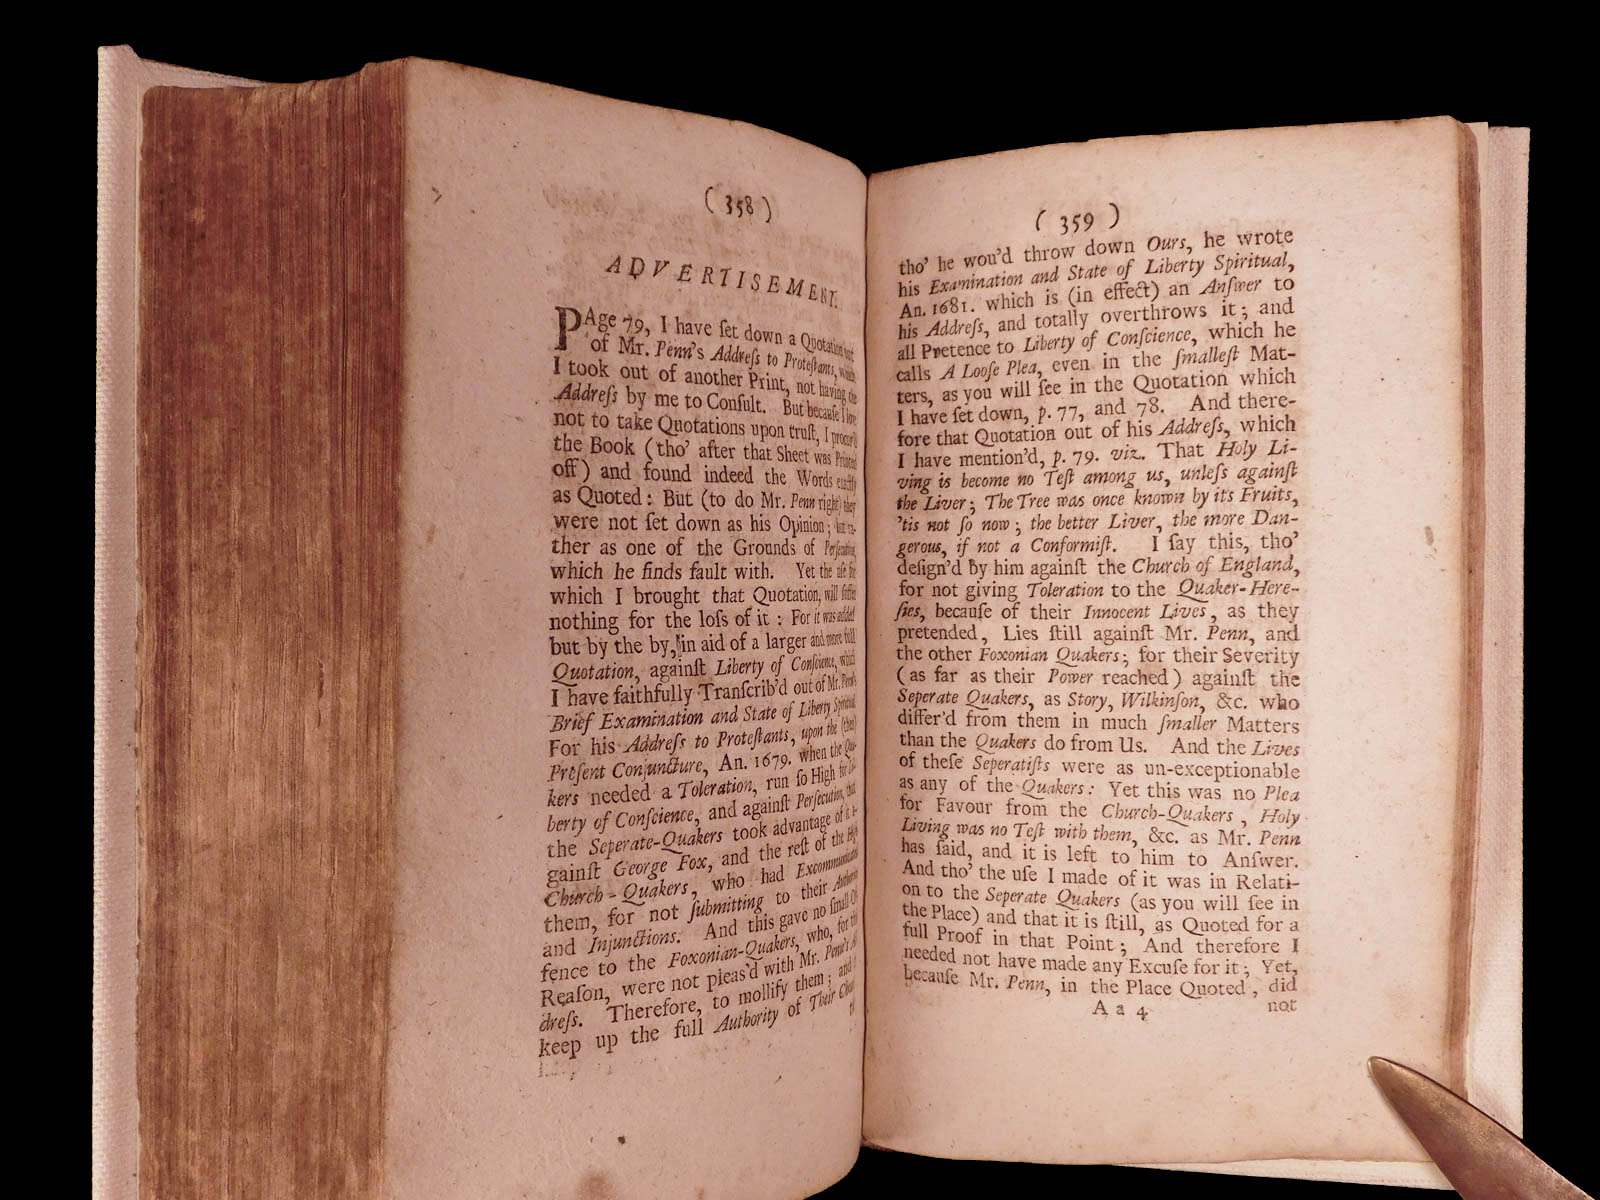 ( 358 )
ADVERTISEMENT.
PAge 79, I have ſet down a Quotation
of Mr. Penn's Addreſs to Proteſtants, which
I took out of another Print, not having the
Addreſs by me to Conſult. But becauſe I love
not to take Quotations upon truſt, I procur'd
the Book (tho' after that Sheet was Printed
off) and found indeed the Words exactly
as Quoted: But (to do Mr. Penn right) they
were not ſet down as his Opinion; but ra-
ther as one of the Grounds of Perſecution,
which he finds fault with. Yet the uſe for
which I brought that Quotation, will ſuffer
nothing for the loſs of it: For it was added
but by the by, in aid of a larger and more full
Quotation, againſt Liberty of Conſcience, which
I have faithfully Tranſcrib'd out of Mr. Penn's
Brief Examination and State of Liberty Spiritual.
For his Addreſs to Proteſtants, upon the (then)
Preſent Conjuncture, An. 1679. when the Qua-
kers needed a Toleration, run ſo High for Li-
berty of Conſcience, and againſt Perſecution, that
the Seperate-Quakers took advantage of it a-
gainſt George Fox, and the reſt of the High
Church-Quakers, who had Excommunicated
them, for not ſubmitting to their Authority
and Injunctions. And this gave no ſmall Of-
fence to the Foxonian-Quakers, who, for this
Reaſon, were not pleas'd with Mr. Penn's Ad-
dreſs. Therefore, to mollify them; and
keep up the full Authority of Their Church
( 359 )
tho' he wou'd throw down Ours, he wrote
his Examination and State of Liberty Spiritual,
An. 1681. which is (in effect) an Anſwer to
his Addreſs, and totally overthrows it; and
all Pretence to Liberty of Conſcience, which he
calls A Looſe Plea, even in the ſmalleſt Mat-
ters, as you will ſee in the Quotation which
I have ſet down, p. 77, and 78. And there-
fore that Quotation out of his Addreſs, which
I have mention'd, p. 79. viz. That Holy Li-
ving is become no Teſt among us, unleſs againſt
the Liver; The Tree was once known by its Fruits,
'tis not ſo now; the better Liver, the more Dan-
gerous, if not a Conformiſt. I ſay this, tho'
deſign'd by him againſt the Church of England,
for not giving Toleration to the Quaker-Here-
ſies, becauſe of their Innocent Lives, as they
pretended, Lies ſtill againſt Mr. Penn, and
the other Foxonian Quakers; for their Severity
(as far as their Power reached) againſt the
Seperate Quakers, as Story, Wilkinſon, &c. who
differ'd from them in much ſmaller Matters
than the Quakers do from Us. And the Lives
of theſe Seperatiſts were as un-exceptionable
as any of the Quakers: Yet this was no Plea
for Favour from the Church-Quakers, Holy
Living was no Teſt with them, &c. as Mr. Penn
has ſaid, and it is left to him to Anſwer.
And tho' the uſe I made of it was in Relati-
on to the Seperate Quakers (as you will ſee in
the Place) and that it is ſtill, as Quoted for a
full Proof in that Point; And therefore I
needed not have made any Excuſe for it; Yet,
becauſe Mr. Penn, in the Place Quoted, did
A a 4 not